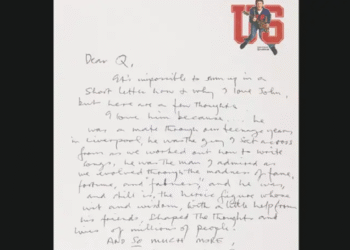 US
Dear Q,
It's impossible to sum up in a
short letter how & why I love John,
but here are a few thoughts.
I love him because... he
was a mate through our teenage years
in Liverpool, he was the guy I
from as we worked out how to write
songs, he was the man I admired as
we evolved through the madness of fame,
fortune, and "fabness" and he was,
and still is, the heroic figure whose
wit and wisdom, with a little help from
his friends, shaped the thoughts and
lives of millions of people.
AND SO MUCH MORE!